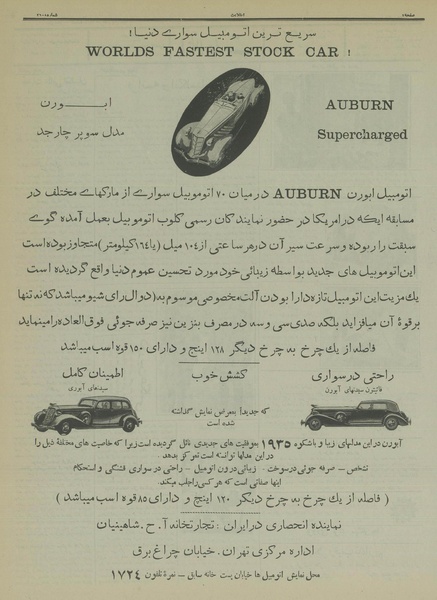 صفحه ۸
اطلاعات
سریع ترین اتومبیل سواری دنیا!
WORLDS FASTEST STOCK CAR !
ابورن
مدل سوپر چارجد
AUBURN
Supercharged
اتومبیل ابورن AUBURN درمیان ۷۰ اتوموبیل سواری از مارکهای مختلف در
مسابقه ایکه در امریکا در حضور نمایندگان رسمی کلوب اتوموبیل بعمل آمده گوی
سبقت را ربوده و سرعت سیر آن در هر ساعتی از ۱۰۴ میل (یا ۱۶۴ کیلومتر) متجاوز بوده است
این اتوموبیل های جدید بواسطه زیبائی خود مورد تحسین عموم دنیا واقع گردیده است
یک مزیت این اتومبیل تازه دارا بودن آلت مخصوصی موسوم به (دوال رای شیو میباشد که نه تنها
بر قوهٔ آن میافزاید بلکه صدی سی و سه در مصرف بنزین نیز صرفه جوئی فوق العاده را مینماید
فاصله از یک چرخ به چرخ دیگر ۱۲۸ اینچ و دارای ۱۵۰ قوه اسب میباشد
راحتی در سواری
فائیتون سیدنهای آبورن
کشش خوب
اطمینان کامل
سیدهای آبوری
که جدیدا بمعرض نمایش گذاشته
شده است
آبورن در این مدلهای زیبا و باشکوه ۱۹۳۵ بموفقیت های جدیدی نائل گردیده است زیرا که خاصیت های مختلفهٔ ذیل را
در این مدلها توانسته است تمرکز بدهد
تشخص - صرفه جوئی در سوخت - زیبائی درون اتومبیل - راحتی در سواری قشنگی و استحکام
اینها صفاتی است که هر کسی را جلب میکند
( فاصله از یک چرخ به چرخ دیگر ۱۲۰ اینچ و دارای ۸۵ قوه اسب میباشد )
نماینده انحصاری در ایران : تجارتخانه آ. ح. شاهینیان
اداره مرکزی تهران، خیابان چراغ برق
محل نمایش اتومبیل ها خیابان پست خانه سابق - نمرهٔ تلفون ۱۷۲۴